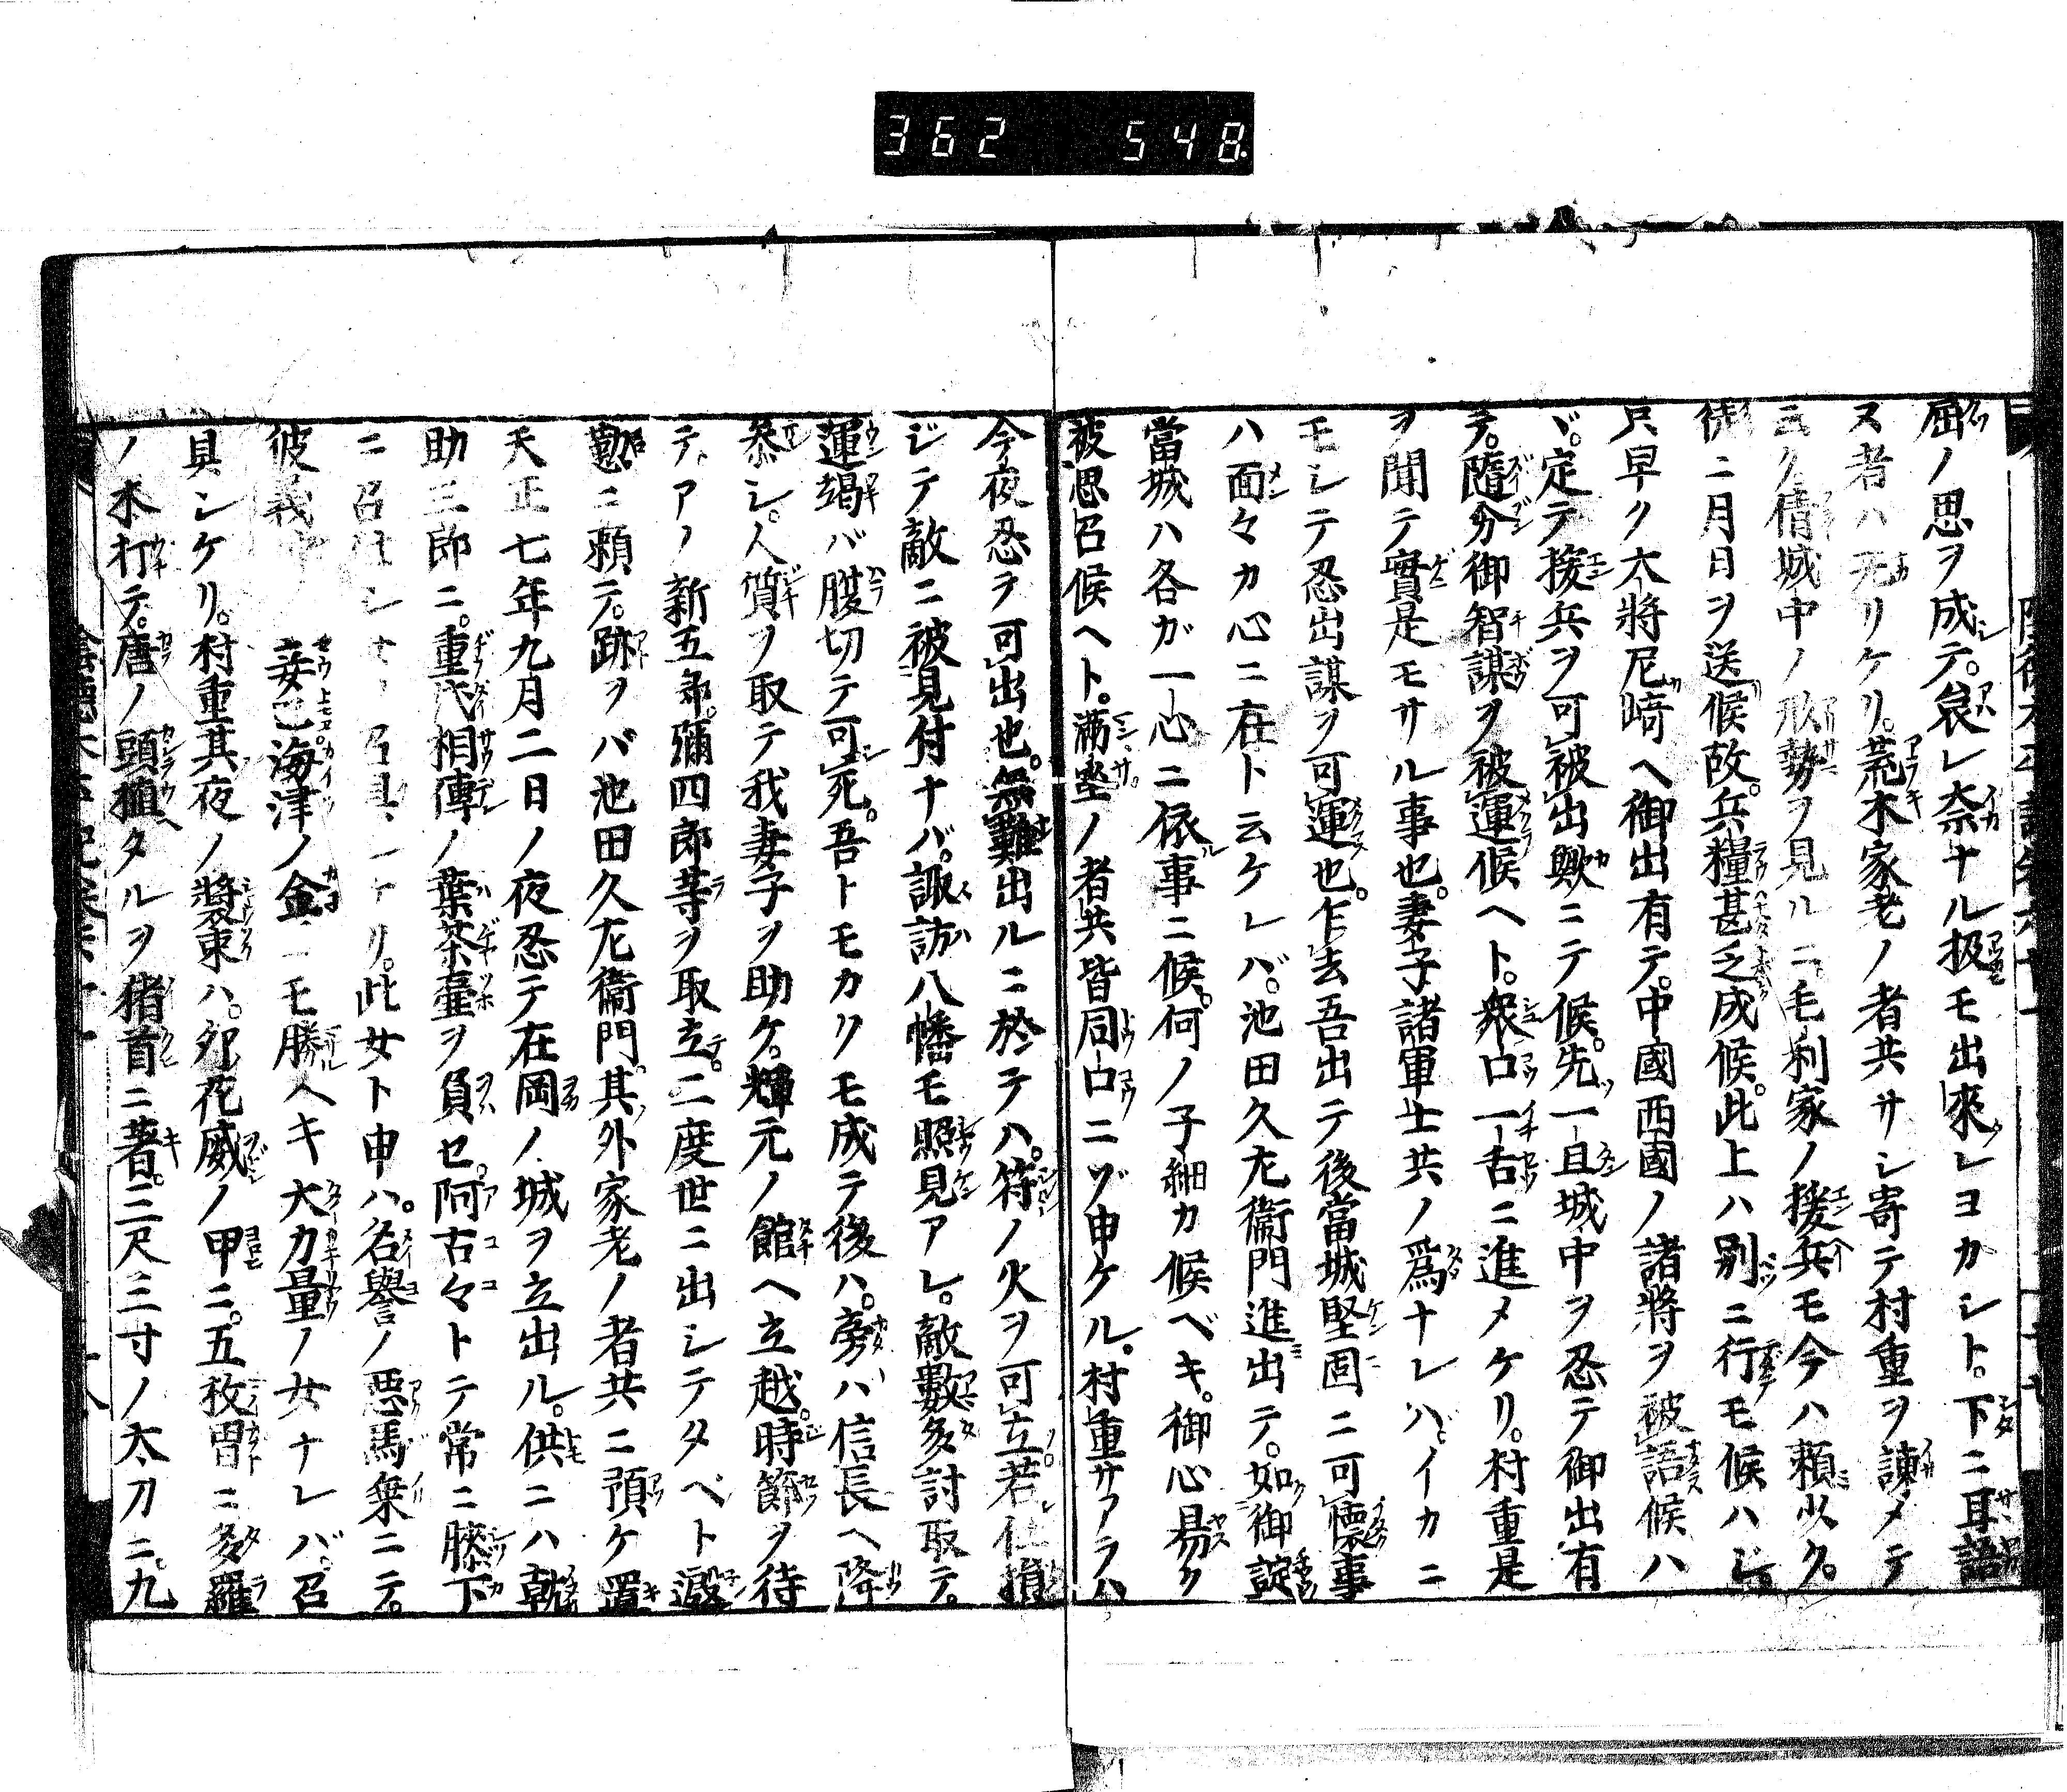 362 548
屈ノ思ヲ成テ。哀レ奈ナル扱モ出來レヨカシト。下ニ耳語
ヌ者ハ无リケリ。荒木家老ノ者共サシ寄テ村重ヲ諌メテ
云ク倩城中ノ形勢ヲ見ルニ。毛利家ノ援兵モ今ハ頼少ク。
徒ニ月日ヲ送候故。兵糧甚乏成候。此上ハ別ニ行モ候ハジ
只早ク大將尼﨑ヘ御出有テ。中國西國ノ諸將ヲ被語候ハ
ヾ。定テ援兵ヲ可被出歟ニテ候。先一旦城中ヲ忍テ御出有
テ。隨分御智謀ヲ被運候ヘト。衆口一舌ニ進メケリ。村重是
ヲ聞テ實是モサル事也。妻子諸軍士共ノ爲ナレハ。イカニ
モシテ忍出謀ヲ可運也。乍去吾出テ後當城堅固ニ可懷事
ハ面々カ心ニ在ト云ケレバ。池田久左衞門進出テ。如御諚
當城ハ各ガ一心ニ依事ニ候。何ノ子細カ候ベキ。御心易ク
被思召候ヘト。滿坐ノ者共皆同口ニゾ申ケル。村重サアラハ
今夜忍ヲ可出也。無難出ルニ於テハ。符ノ火ヲ可立。若仕損
ジテ敵ニ被見付ナバ。諏訪八幡モ照見アレ。敵數多討取テ。
運竭バ腹切テ可死。吾トモカリモ成テ後ハ。旁ハ信長ヘ降
參シ。人質ヲ取テ我妻子ヲ助ケ。輝元ノ館ヘ立越。時節ヲ待
テ。アノ新五郎。彌四郎等ヲ取立。二度世ニ出シテタベト慇
懃ニ頼テ。跡ヲバ池田久左衞門。其外家老ノ者共ニ預ケ置
天正七年九月二日ノ夜忍テ在岡ノ城ヲ立出ル。供ニハ乾
助三郎ニ。重代相傳ノ葉茶臺ヲ負セ。阿古々トテ常ニ膝下
ニ召仕シ女ヲ召具、ケリ。此女ト申ハ。名譽ノ惡馬乗ニテ。
彼義仲ノ妾巴海津ノ金ニモ勝ヘキ大力量ノ女ナレバ。召
具シケリ。村重其夜ノ裝束ハ。卯花威ノ甲ニ。五枚冑ニ多羅
ノ木打テ。唐ノ頭植タルヲ猪首ニ著。三尺三寸ノ太刀ニ。九